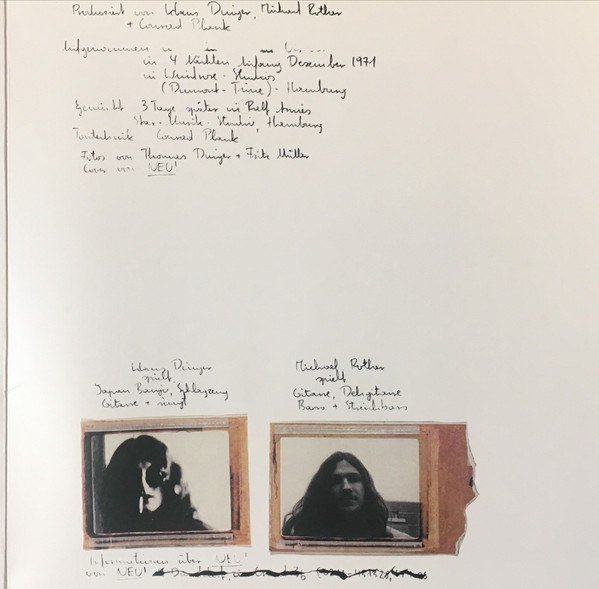 Produziert von Klaus Dinger, Michael Rother
+ Conrad Plank
Aufgenommen
in 4 Nächten Anfang Dezember 1971
in Windrose-Studios
(Dumont-Time)-Hamburg
Gemischt 3 Tage später in Ralf Arnies
Star-Musik-Studio, Hamburg
Tontechnik Conrad Plank
Fotos von Thomas Dinger + Fritz Müller
Cover von NEU!
Klaus Dinger
spielt
Japan Banjo, Schlagzeug
Gitarre + singt
Michael Rother
spielt
Gitarre, Delaygitarre
Bass + Streichbass
Informationen über NEU!
von NEU!